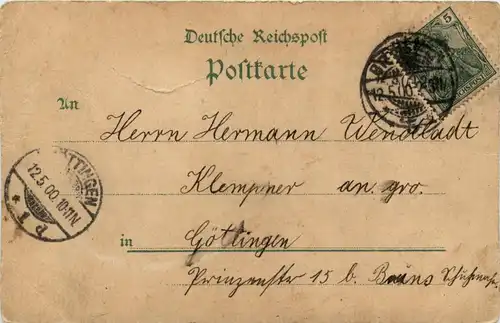 Deutsche Reichspost
Postkarte
5
12.5.00.
An
Herrn Hermann Wendtladt
Klempner an. gro.
12.5.00.10-11N
in Göttingen
Prinzenstr 15 b. Bruns